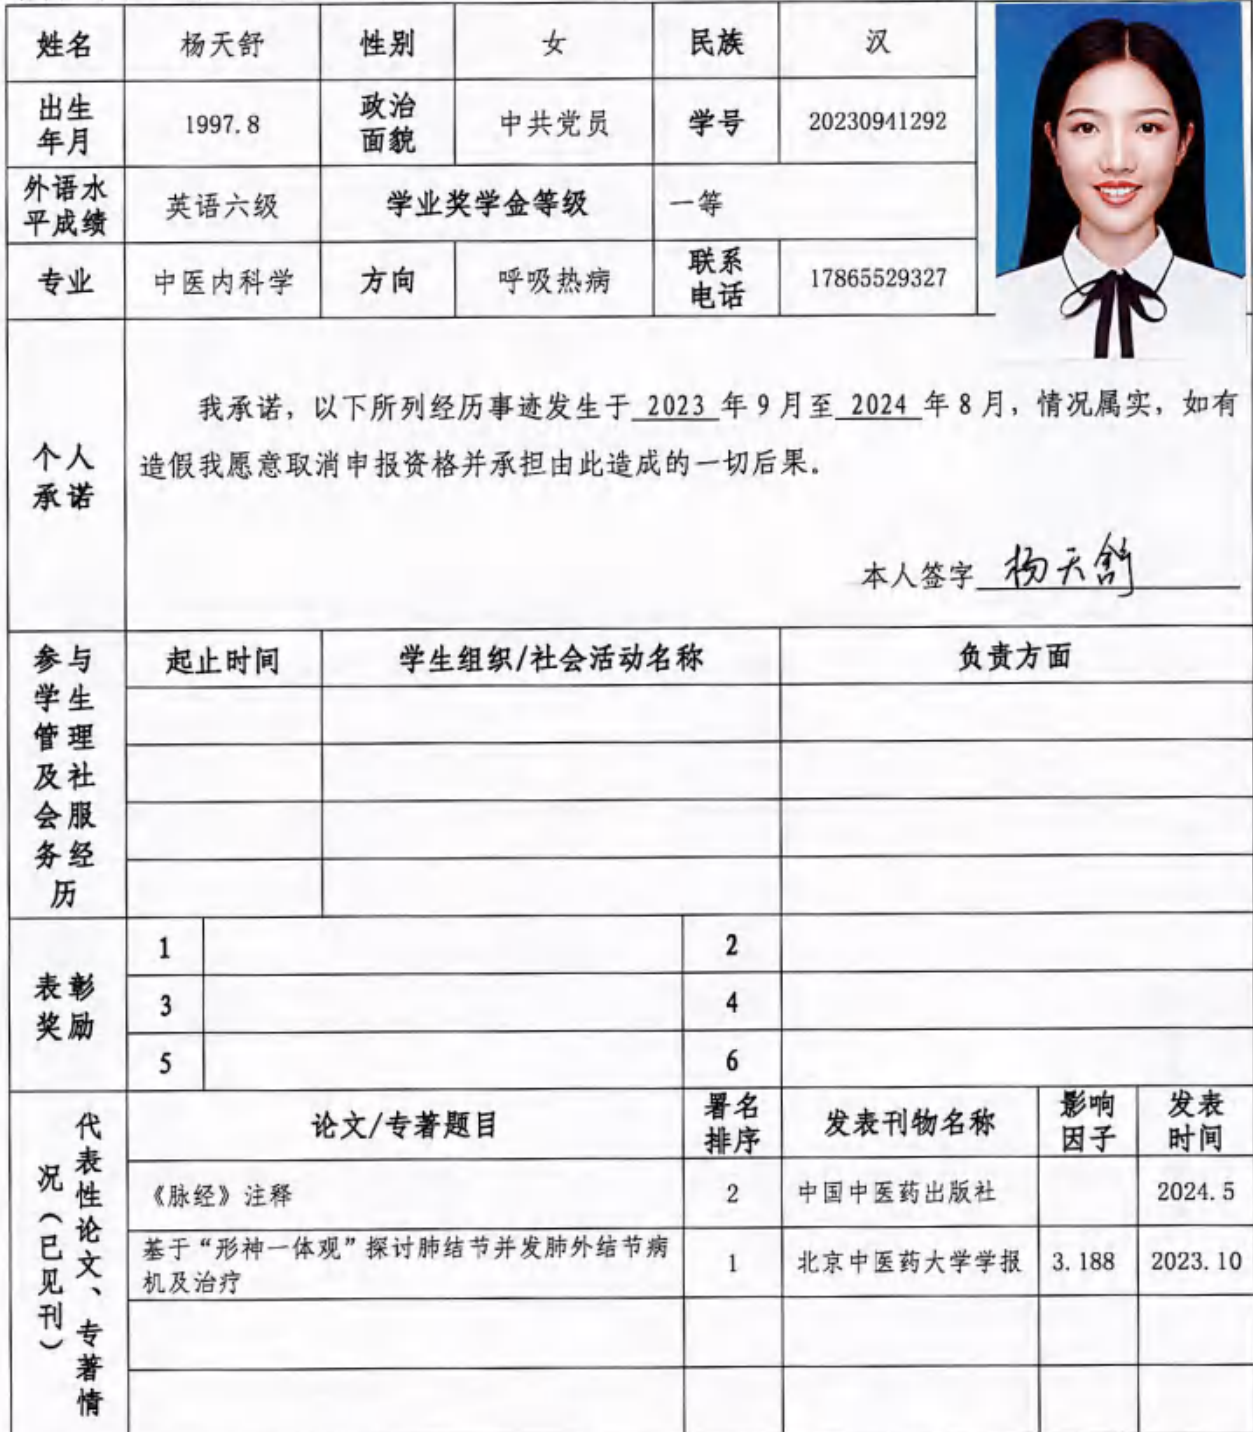 姓名 杨天舒 性别 女 民族 汉
出生年月 1997.8 政治面貌 中共党员 学号 20230941292
外语水平成绩 英语六级 学业奖学金等级 一等
专业 中医内科学 方向 呼吸热病 联系电话 17865529327
个人承诺
我承诺，以下所列经历事迹发生于 2023 年 9 月至 2024 年 8 月，情况属实，如有
造假我愿意取消申报资格并承担由此造成的一切后果。
本人签字 杨天舒
参与学生管理及社会服务经历
起止时间 学生组织/社会活动名称 负责方面
表彰奖励
1 2
3 4
5 6
代表性论文、专著情况（已见刊）
论文/专著题目 署名排序 发表刊物名称 影响因子 发表时间
《脉经》注释 2 中国中医药出版社 2024.5
基于“形神一体观”探讨肺结节并发肺外结节病
机及治疗 1 北京中医药大学学报 3.188 2023.10